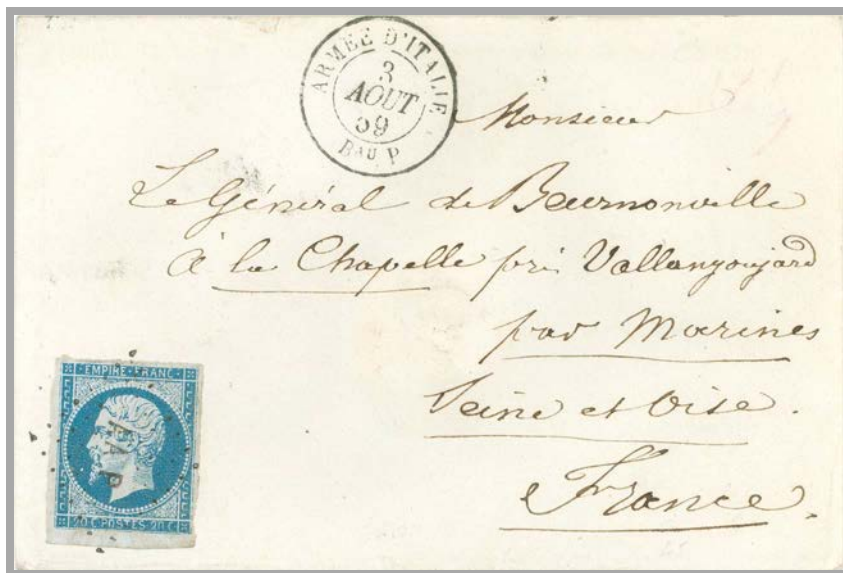 ARMÉE D'ITALIE
3
AOUT
59
Bau P
Monsieur
Le Général de Beurnonville
à la Chapelle près Vallangoujard
par Marines
Seine et Oise.
France.
EMPIRE FRANC
AAP
20 C POSTES 20 C